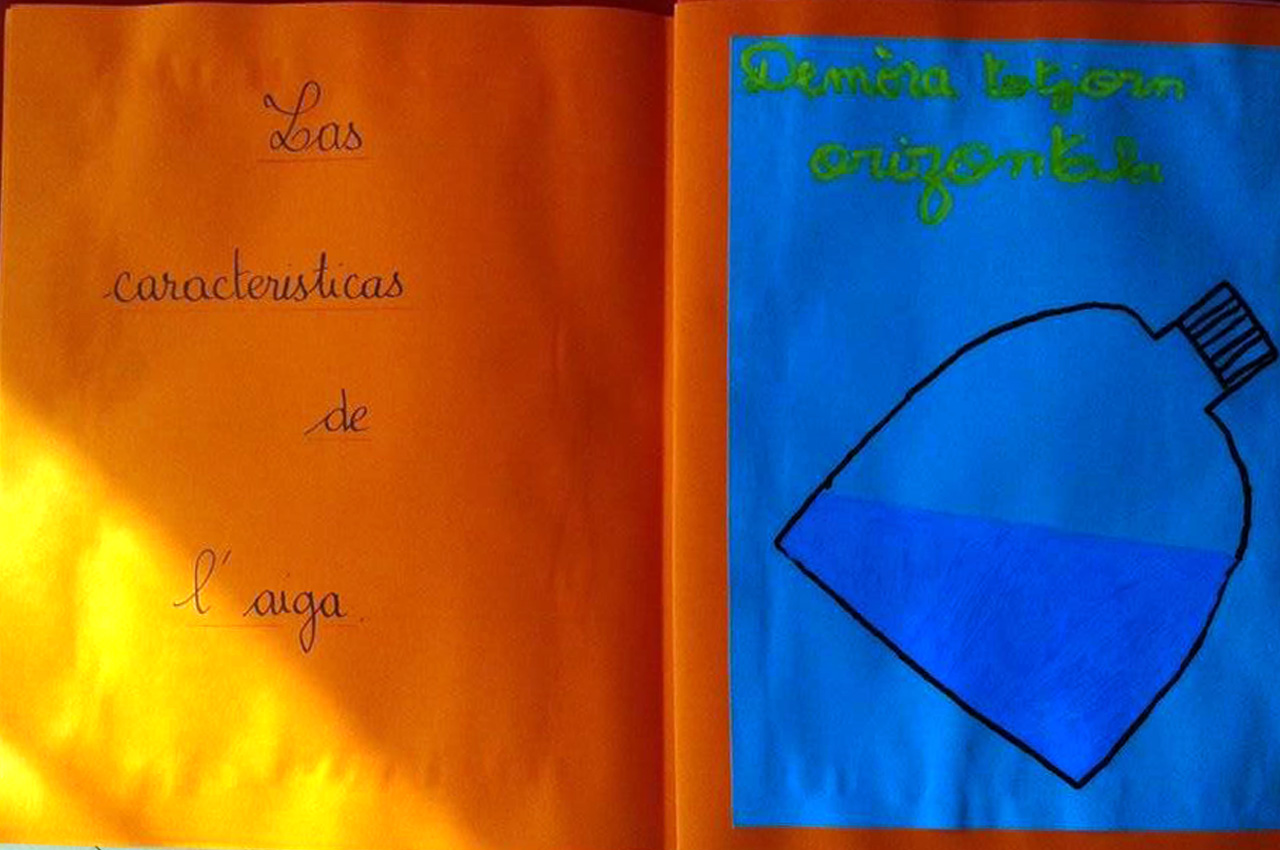 Las
caracteristicas
de
l'aiga.
Demòra totjorn
orizontala